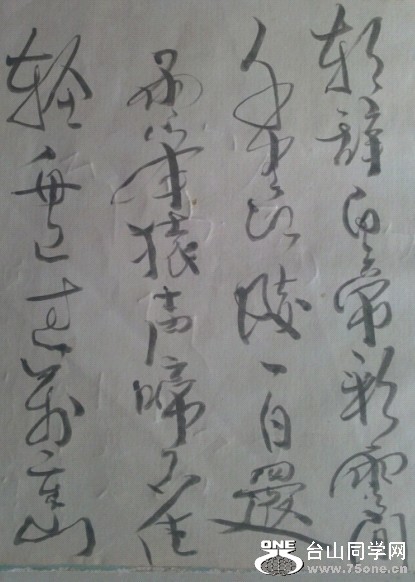 朝辞白帝彩雲间
千里江陵一日還
两岸猿声啼不住
轻舟已过萬重山
ONE
台山同学网
www.75one.cn